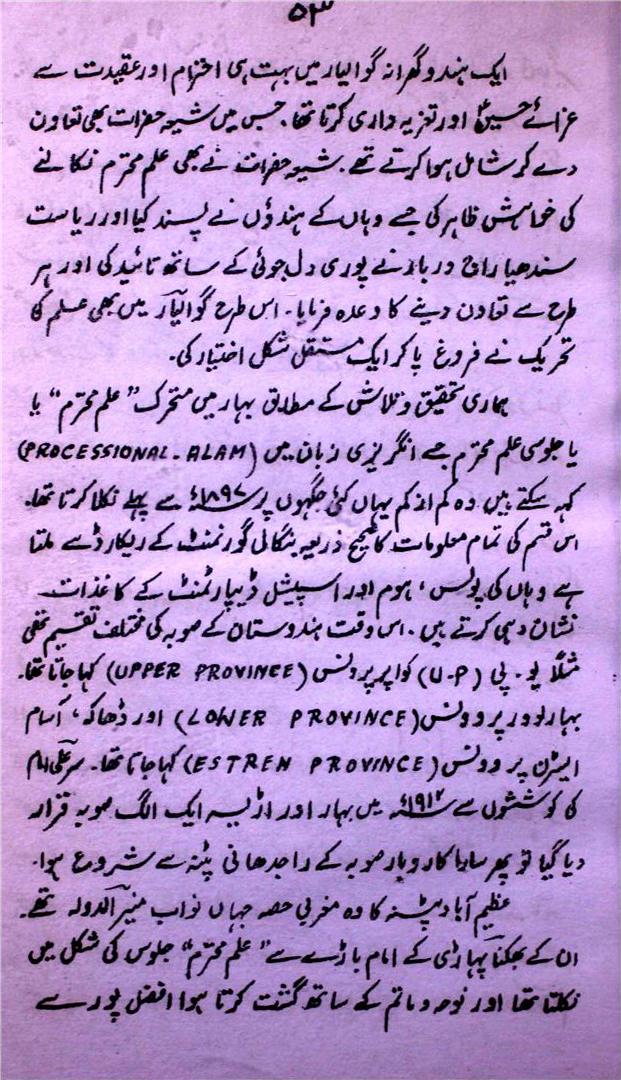 ۵۳
ایک ہندو گھرانہ گوالیار میں بہت ہی احترام اور عقیدت سے
عزائے حسینؑ اور تعزیہ داری کرتا تھا۔ جس میں شیعہ حضرات بھی تعاون
دے کر شامل ہوا کرتے تھے۔ شیعہ حضرات نے بھی علم محرم نکالنے
کی خواہش ظاہر کی جسے وہاں کے ہندوؤں نے پسند کیا اور ریاست
سندھیا راج دربار نے پوری دل جوئی کے ساتھ تائید کی اور ہر
طرح سے تعاون دینے کا وعدہ فرمایا۔ اس طرح گوالیار میں بھی علم کی
تحریک نے فروغ پا کر ایک مستقل شکل اختیار کی۔
ہماری تحقیق و تلاش کے مطابق بہار میں متحرک "علم محرم" یا
یا جلوسی علم محرم جسے انگریزی زبان میں (PROCESSIONAL-ALAM)
کہہ سکتے ہیں وہ کم از کم یہاں کئی جگہوں پر ۱۸۹۷ء سے پہلے نکلا کرتا تھا۔
اس قسم کی تمام معلومات کا صحیح ذریعہ بنگالی گورنمنٹ کے ریکارڈ سے ملتا
ہے وہاں کی پولس، ہوم اور اسپیشل ڈیپارٹمنٹ کے کاغذات
نشان دہی کرتے ہیں۔ اس وقت ہندوستان کے صوبہ کی مختلف تقسیم تھی
مثلاً یو۔پی (U-P) کو اپر پرونس (UPPER PROVINCE) کہا جاتا تھا۔
بہار لوور پروونس (LOWER PROVINCE) اور ڈھاکہ، آسام
ایسٹرن پروونس (ESTREN PROVINCE) کہا جاتا تھا۔ سر علی امام
کی کوششوں سے ۱۹۱۲ء میں بہار اور اڑیسہ ایک الگ صوبہ قرار
دیا گیا تو پھر سارا کاروبار صوبہ کے راجدھانی پٹنہ سے شروع ہوا۔
عظیم آباد پٹنہ کا وہ مغربی حصہ جہاں نواب منیر الدولہ تھے۔
ان کے بھکنا پہاڑی کے امام باڑے سے "علم محرم" جلوس کی شکل میں
نکلتا تھا اور نوحہ و ماتم کے ساتھ گشت کرتا ہوا افضل پور سے